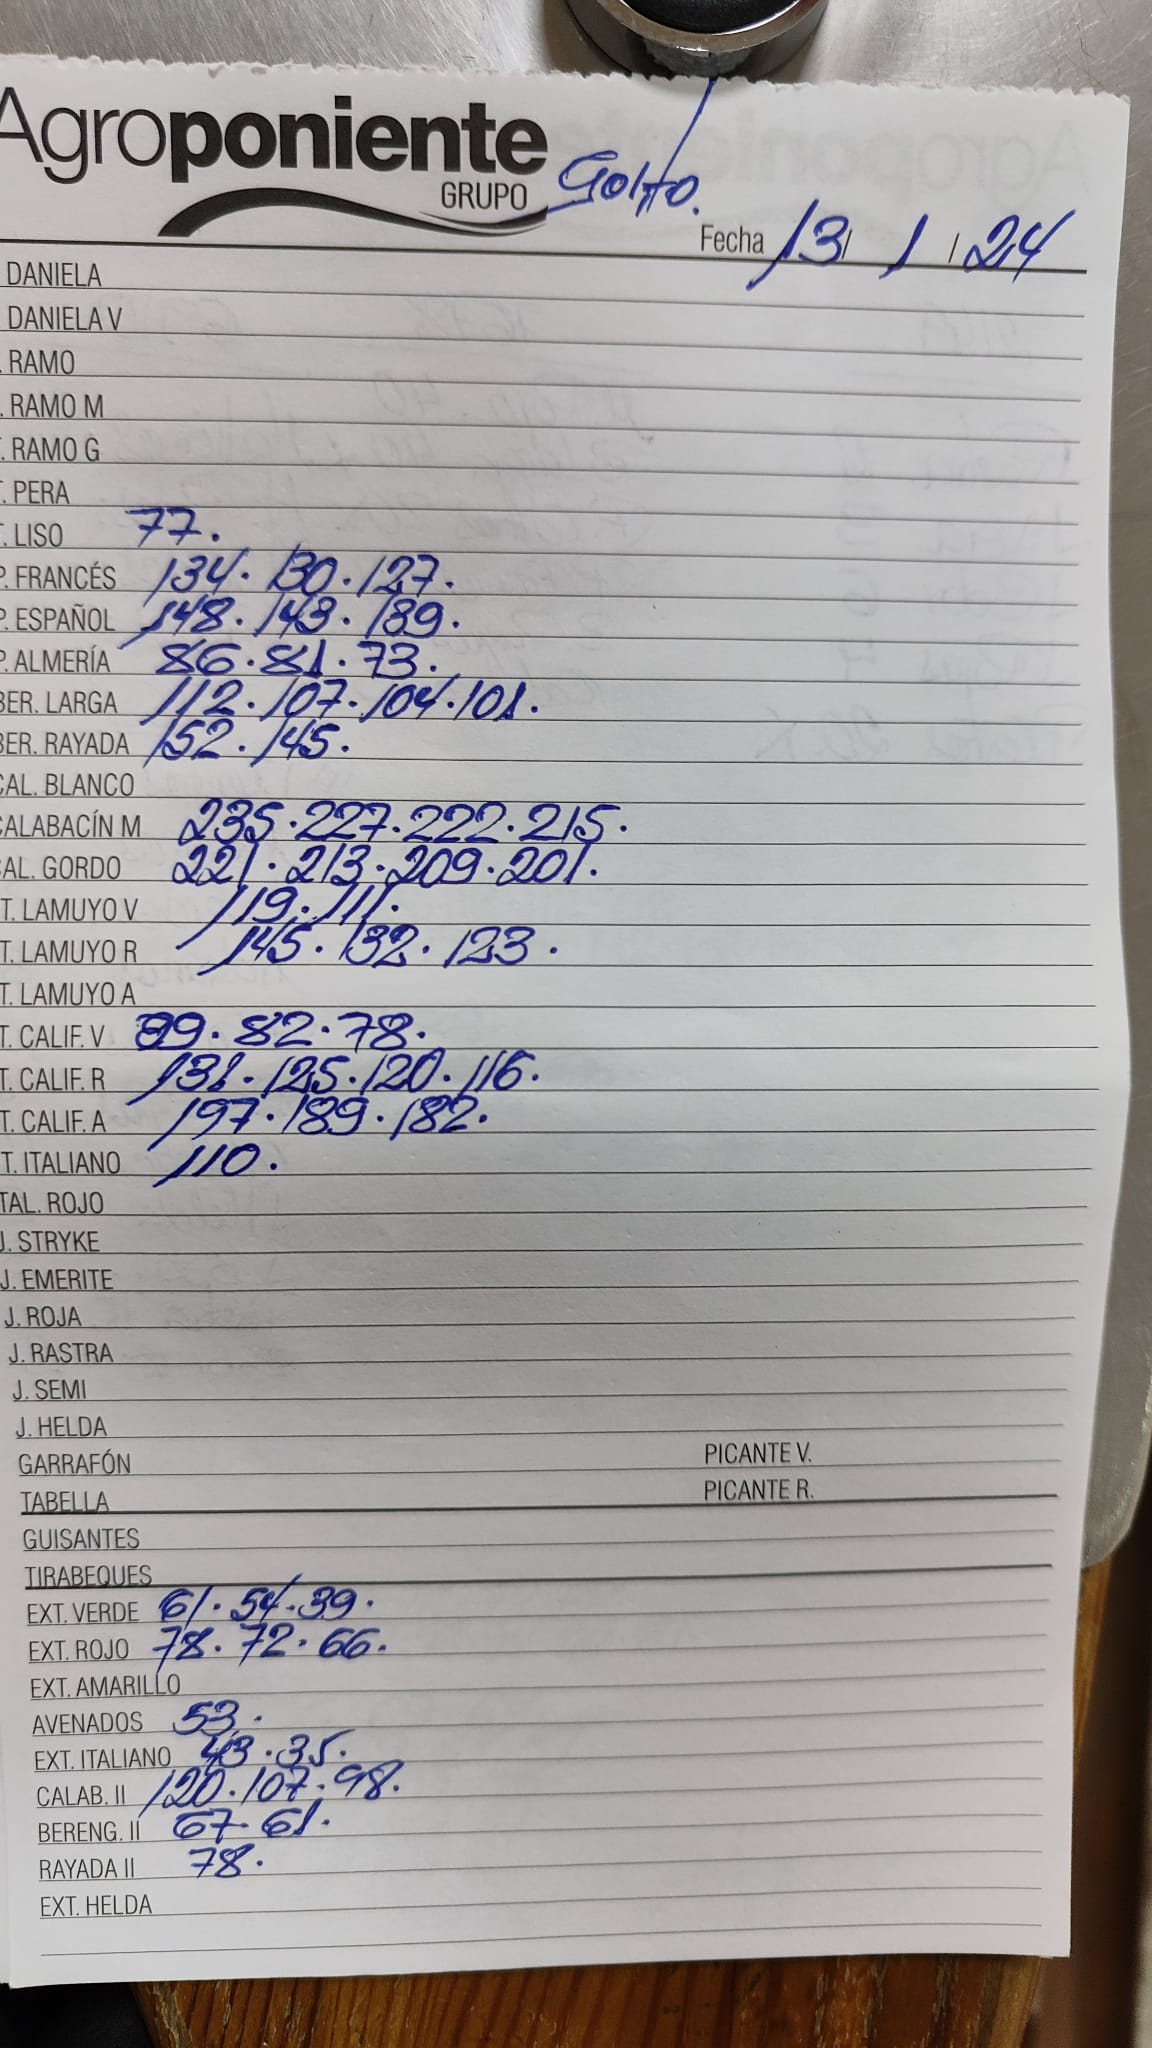 Agroponiente
GRUPO
Golfo.
Fecha 13 / 1 / 24
DANIELA
DANIELA V
. RAMO
. RAMO M
. RAMO G
. PERA
. LISO 77.
P. FRANCÉS 134. 130. 127.
P. ESPAÑOL 148. 143. 139.
P. ALMERÍA 86. 81. 73.
BER. LARGA 112. 107. 104. 101.
BER. RAYADA 152. 145.
CAL. BLANCO
CALABACÍN M 235. 227. 222. 215.
CAL. GORDO 221. 213. 209. 201.
T. LAMUYO V 119. 111.
T. LAMUYO R 145. 132. 123.
T. LAMUYO A
T. CALIF. V 89. 82. 78.
T. CALIF. R 131. 125. 120. 116.
T. CALIF. A 197. 189. 182.
T. ITALIANO 110.
TAL. ROJO
J. STRYKE
J. EMERITE
J. ROJA
J. RASTRA
J. SEMI
J. HELDA
GARRAFÓN PICANTE V.
TABELLA PICANTE R.
GUISANTES
TIRABEQUES
EXT. VERDE 61. 54. 39.
EXT. ROJO 78. 72. 66.
EXT. AMARILLO
AVENADOS 53.
EXT. ITALIANO 43. 35.
CALAB. II 120. 107. 98.
BERENG. II 67. 61.
RAYADA II 78.
EXT. HELDA